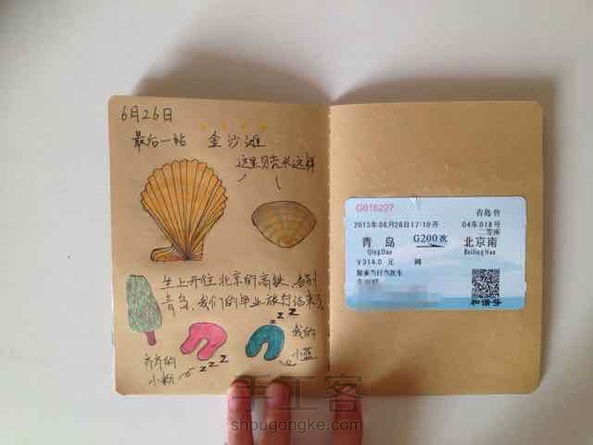 6月26日
最后一站 金沙滩
这里贝壳长这样
坐上开往北京的高铁,告别
青岛,我们的毕业旅行结束了
乔乔的
小粉
zzz
zzz
我的
小蓝
G016227
青岛售
2015年06月26日17:10开
04车01B号
青岛
G200次
北京南
QingDao
BeiJingNan
￥314.0元
网
二等座
限乘当日当次车
和谐号
手工客
shougongke.com